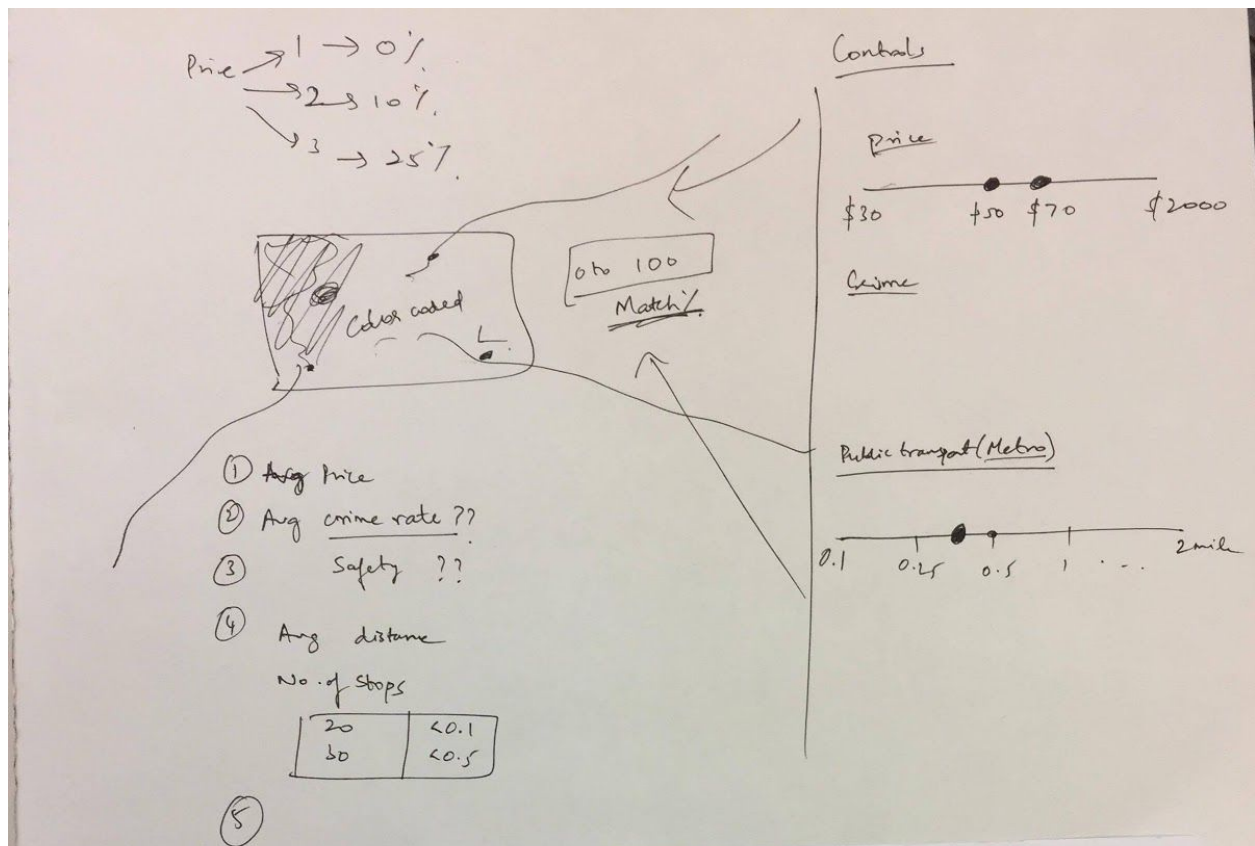 Price 1 → 0%
→ 2 → 10%.
3 → 25%.
Color coded
0 to 100
Match%
① Avg Price
② Avg crime rate ??
③ Safety ??
④ Avg distance
No. of Stops
20 <0.1
30 <0.5
⑤
Controls
Price
$30 $50 $70 $2000
Crime
Public transport (Metro)
0.1 0.25 0.5 1 . -- 2 mile